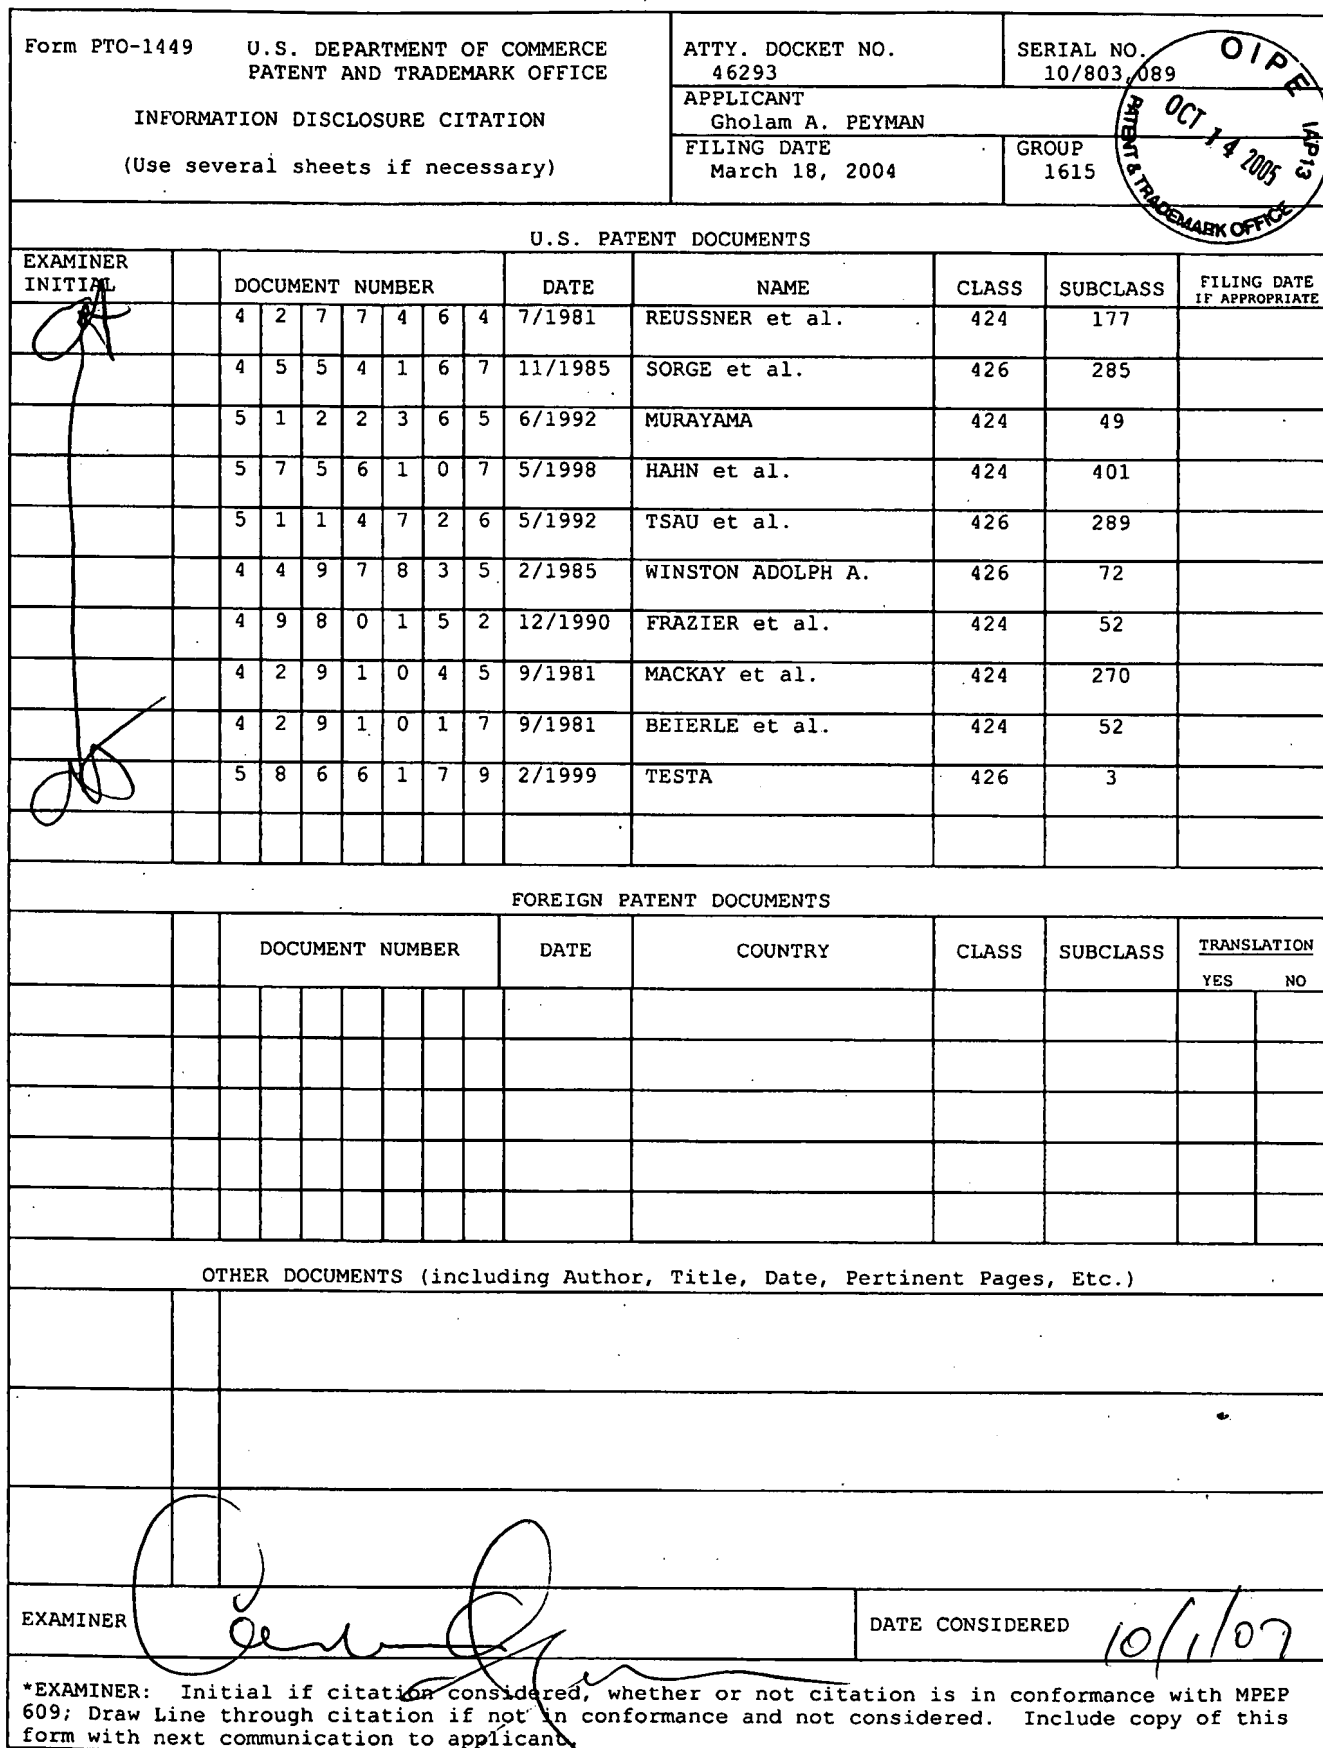 Form PTO-1449 U.S. DEPARTMENT OF COMMERCE
PATENT AND TRADEMARK OFFICE
INFORMATION DISCLOSURE CITATION
(Use several sheets if necessary)
ATTY. DOCKET NO.
46293
SERIAL NO.
10/803,089
APPLICANT
Gholam A. PEYMAN
FILING DATE
March 18, 2004
GROUP
1615
OIPE IAP13
OCT 14 2005
PATENT & TRADEMARK OFFICE
U.S. PATENT DOCUMENTS
EXAMINER INITIAL DOCUMENT NUMBER DATE NAME CLASS SUBCLASS FILING DATE IF APPROPRIATE
4 2 7 7 4 6 4 7/1981 REUSSNER et al. 424 177
4 5 5 4 1 6 7 11/1985 SORGE et al. 426 285
5 1 2 2 3 6 5 6/1992 MURAYAMA 424 49
5 7 5 6 1 0 7 5/1998 HAHN et al. 424 401
5 1 1 4 7 2 6 5/1992 TSAU et al. 426 289
4 4 9 7 8 3 5 2/1985 WINSTON ADOLPH A. 426 72
4 9 8 0 1 5 2 12/1990 FRAZIER et al. 424 52
4 2 9 1 0 4 5 9/1981 MACKAY et al. 424 270
4 2 9 1 0 1 7 9/1981 BEIERLE et al. 424 52
5 8 6 6 1 7 9 2/1999 TESTA 426 3
FOREIGN PATENT DOCUMENTS
DOCUMENT NUMBER DATE COUNTRY CLASS SUBCLASS TRANSLATION
YES NO
OTHER DOCUMENTS (including Author, Title, Date, Pertinent Pages, Etc.)
EXAMINER DATE CONSIDERED 10/1/07
*EXAMINER: Initial if citation considered, whether or not citation is in conformance with MPEP
609; Draw Line through citation if not in conformance and not considered. Include copy of this
form with next communication to applicant.